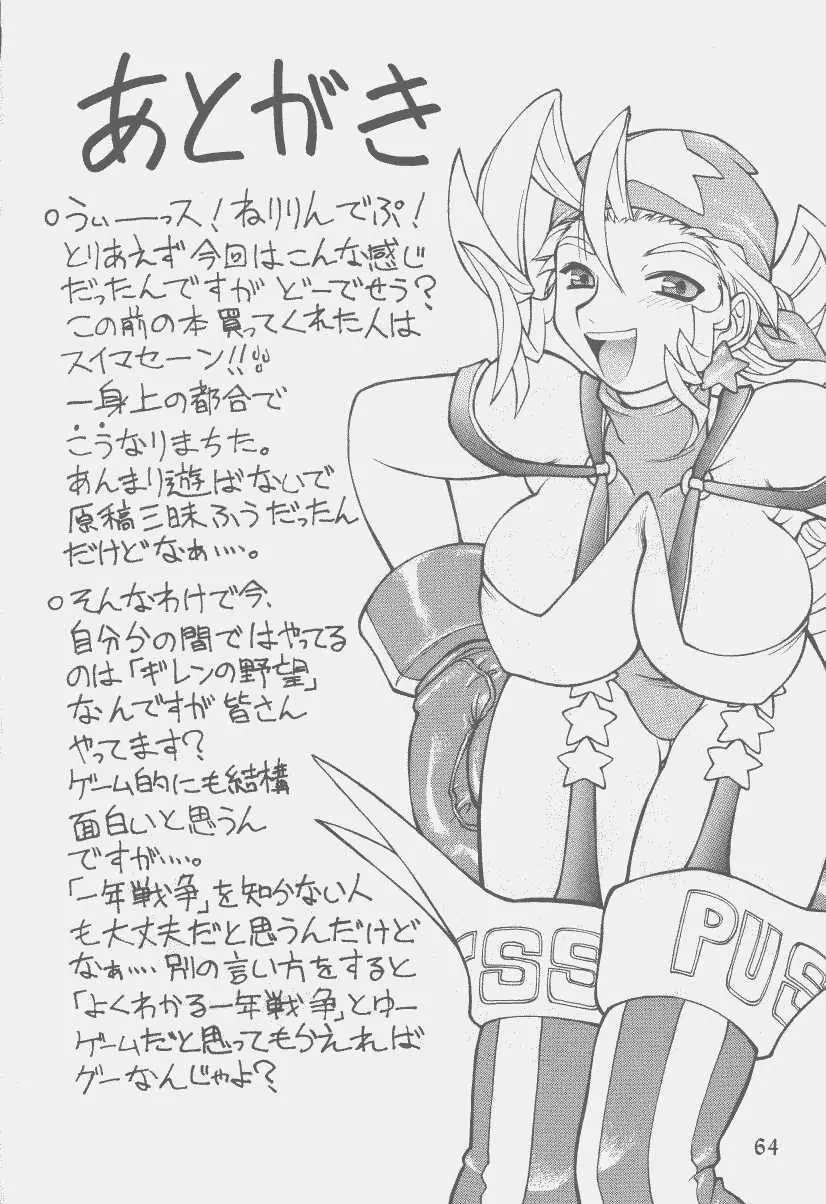 あとがき
○うぃーっス！ねりりんでぷ！
とりあえず今回はこんな感じ
だったんですが どーでせう？
この前の本買ってくれた人は
スイマセーン!!
一身上の都合で
こうなりまちた。
あんまり遊ばないで
原稿三昧ふうだったん
だけどなぁ…。
○そんなわけで今、
自分分の間ではやってる
のは「ギレンの野望」
なんですが皆さん
やってます？
ゲーム的にも結構
面白いと思うん
ですが…。
「一年戦争」を知かない人
も大丈夫だと思うんだけど
なぁ…別の言い方をすると
「よくわかる一年戦争」とゆー
ゲームだと思ってもかえれば
グーなんじゃよ？
SS
PUS
64